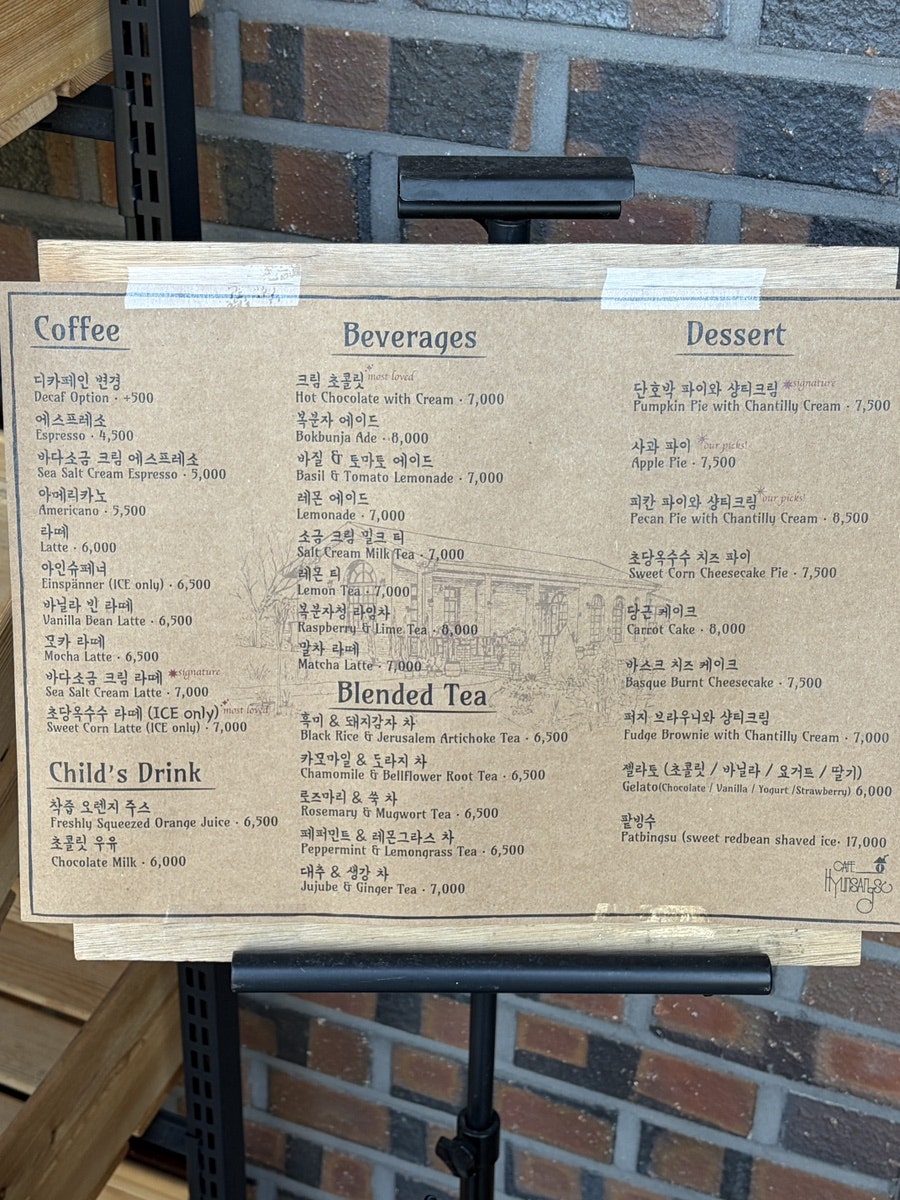 Coffee
디카페인 변경
Decaf Option · +500
에스프레소
Espresso · 4,500
바다소금 크림 에스프레소
Sea Salt Cream Espresso · 5,000
아메리카노
Americano · 5,500
라떼
Latte · 6,000
아인슈페너
Einspänner (ICE only) · 6,500
바닐라 빈 라떼
Vanilla Bean Latte · 6,500
모카 라떼
Mocha Latte · 6,500
바다소금 크림 라떼 signature
Sea Salt Cream Latte · 7,000
초당옥수수 라떼 (ICE only) most loved
Sweet Corn Latte (ICE only) · 7,000
Child's Drink
착즙 오렌지 주스
Freshly Squeezed Orange Juice · 6,500
초콜릿 우유
Chocolate Milk · 6,000
Beverages
크림 초콜릿 most loved
Hot Chocolate with Cream · 7,000
복분자 에이드
Bokbunja Ade · 8,000
바질 & 토마토 에이드
Basil & Tomato Lemonade · 7,000
레몬 에이드
Lemonade · 7,000
소금 크림 밀크 티
Salt Cream Milk Tea · 7,000
레몬 티
Lemon Tea · 7,000
복분자청 라임차
Raspberry & Lime Tea · 8,000
말차 라떼
Matcha Latte · 7,000
Blended Tea
흑미 & 돼지감자 차
Black Rice & Jerusalem Artichoke Tea · 6,500
카모마일 & 도라지 차
Chamomile & Bellflower Root Tea · 6,500
로즈마리 & 쑥 차
Rosemary & Mugwort Tea · 6,500
페퍼민트 & 레몬그라스 차
Peppermint & Lemongrass Tea · 6,500
대추 & 생강 차
Jujube & Ginger Tea · 7,000
Dessert
단호박 파이와 샹티크림 signature
Pumpkin Pie with Chantilly Cream · 7,500
사과 파이 our picks!
Apple Pie · 7,500
피칸 파이와 샹티크림 our picks!
Pecan Pie with Chantilly Cream · 8,500
초당옥수수 치즈 파이
Sweet Corn Cheesecake Pie · 7,500
당근 케이크
Carrot Cake · 8,000
바스크 치즈 케이크
Basque Burnt Cheesecake · 7,500
퍼지 브라우니와 샹티크림
Fudge Brownie with Chantilly Cream · 7,000
젤라토 (초콜릿 / 바닐라 / 요거트 / 딸기)
Gelato(Chocolate / Vanilla / Yogurt /Strawberry) 6,000
팥빙수
Patbingsu (sweet redbean shaved ice· 17,000
CAFE